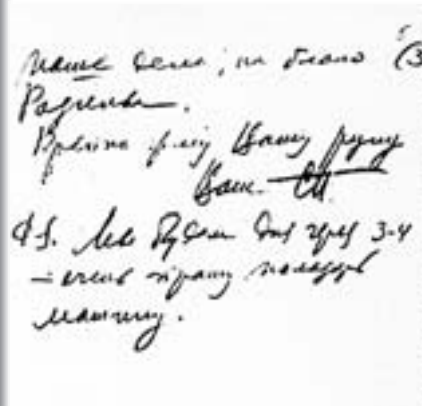 наше дела, на благо (3
Родины.
Крепко жму Вашу руку
Ваш
P.S. Мы будем дня через 3-4
– очень прошу наладить
машину.